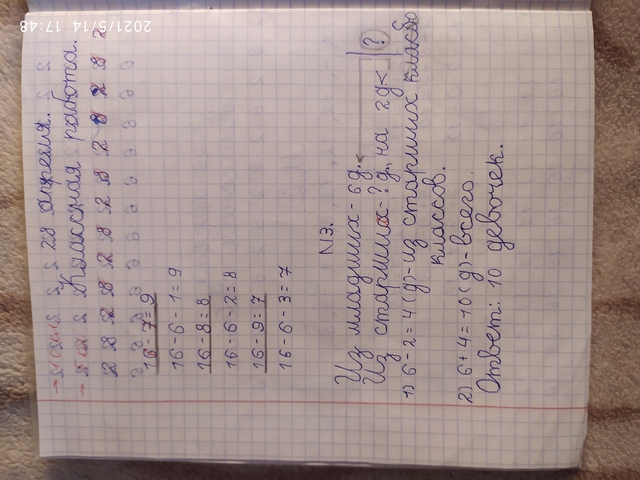 28 апреля.
Классная работа.
2 8 2 8 2 8 2 8 2 8 2
16-7=9
16-6-1=9
16-8=8
16-6-2=8
16-9=7
16-6-3=7
N3.
Из младших-6д.
Из старших-?д., на 2д< ?
1) 6-2=4(д)-из старших классов
классов.
2) 6+4=10(д)-всего.
Ответ: 10 девочек.
2021/5/14 17:48